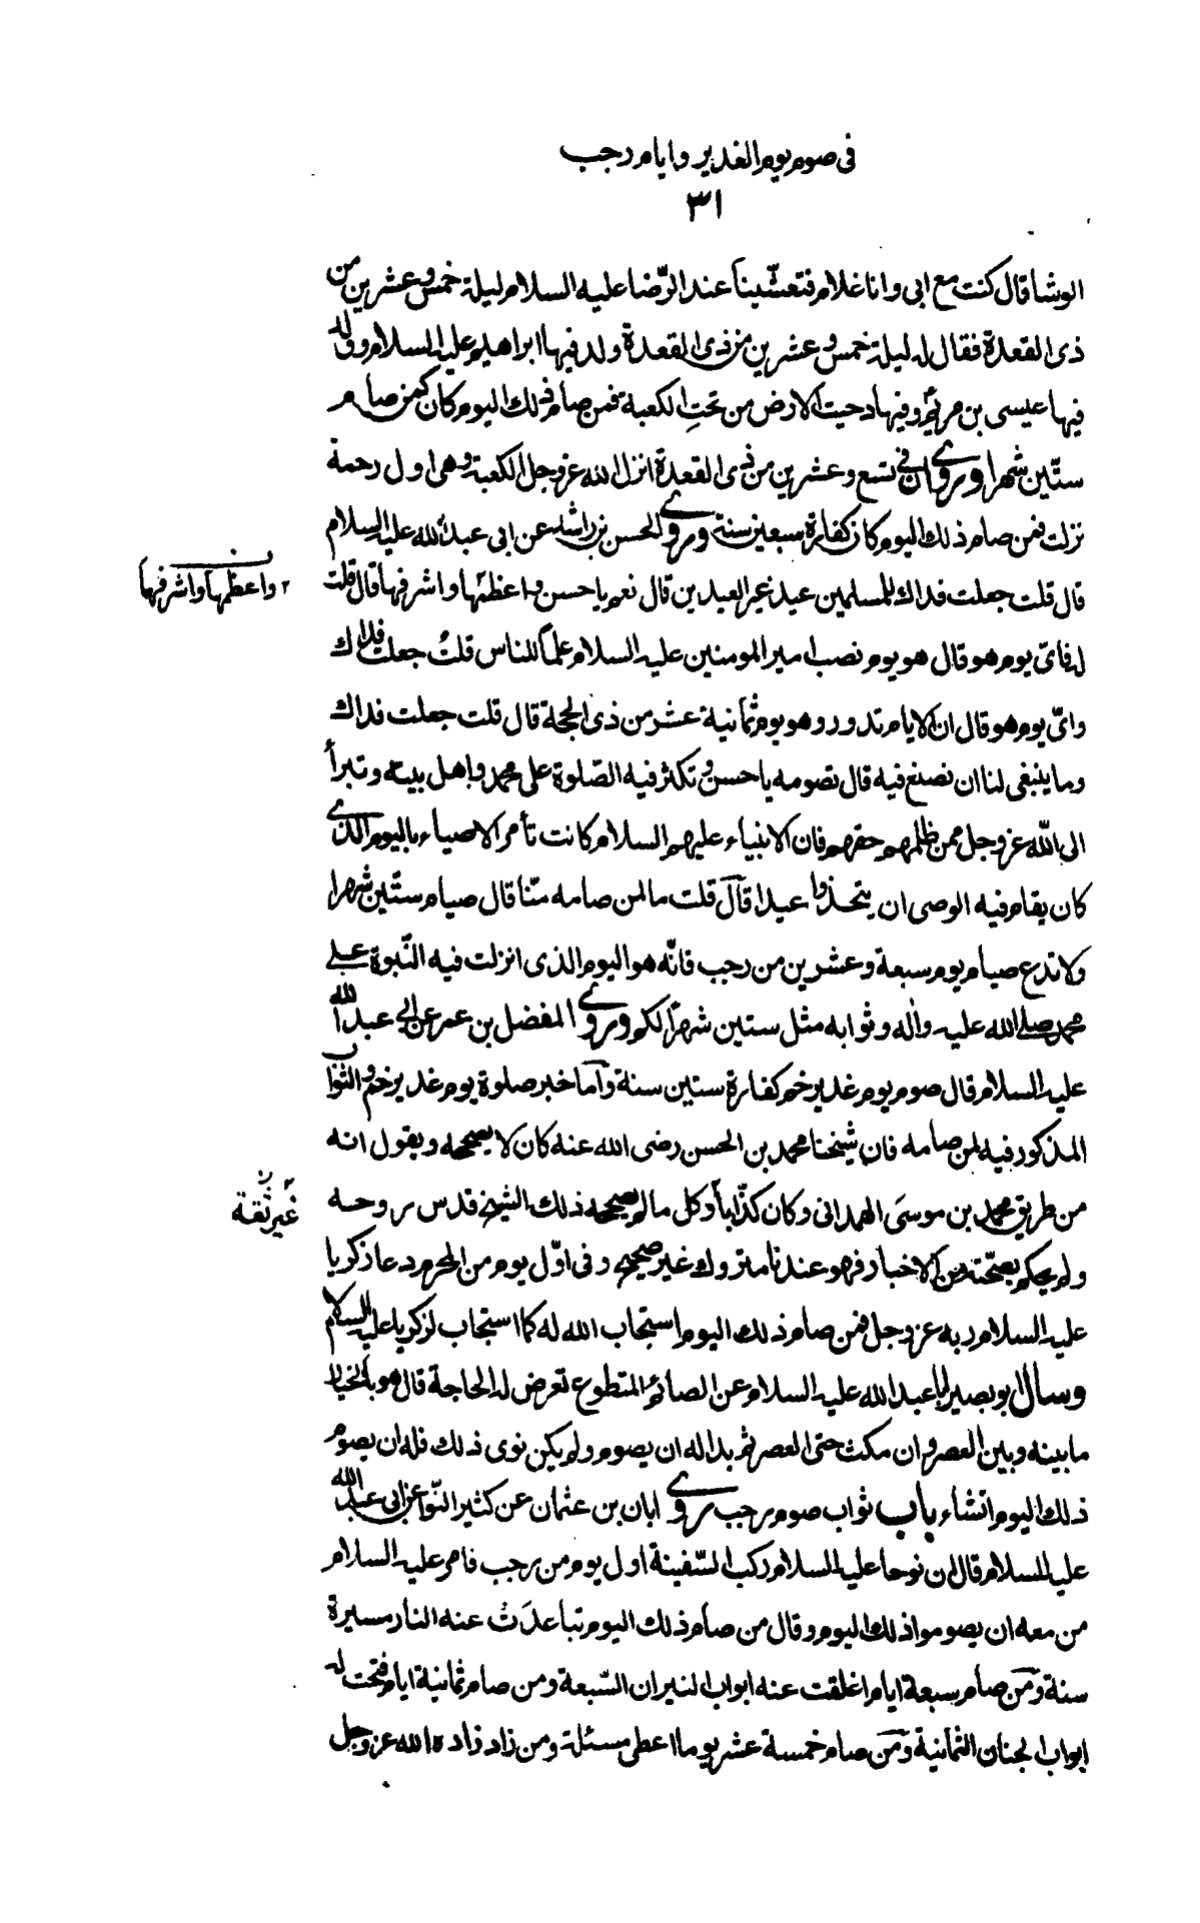 فى صوم يوم الغدير وايام رجب
٣١
الوشا قال كنت مع ابى وانا غلام فتعشّينا عند الرّضا عليه السلام ليلة خمس وعشرين من
ذى القعدة فقال له ليلة خمس وعشرين من ذى القعدة ولد فيها ابراهيم عليه السلام وولد
فيها عيسى بن مريم وفيها دحيت الارض من تحتِ الكعبة فمن صام ذلك اليوم كان كمن صام
ستّين شهرا وروى ان فى تسع وعشرين من ذى القعدة انزل الله عز وجل الكعبة وهى اول رحمة
نزلت فمن صام ذلك اليوم كان كفارة سبعين سنة وروى الحسن بن راشد عن ابى عبد الله عليه السلام
قال قلت جعلت فداك للمسلمين عيد غير العيدين قال نعم يا حسن واعظمها واشرفها قال قلت
واعظمها واشرفها
له فاىّ يوم هو قال هو يوم نصب امير المومنين عليه السلام علماً للناس قلتُ جعلت فداك
واىّ يوم هو قال ان الايام تدور وهو يوم ثمانية عشر من ذى الحجة قال قلت جعلت فداك
وما ينبغى لنا ان نصنع فيه قال تصومه يا حسن وتكثر فيه الصّلوة على محمد واهل بيته وتبرأ
الى الله عز وجل ممن ظلمهم حقهم فان الانبياء عليهم السلام كانت تأمر الاصياء باليوم الذى
كان يقام فيه الوصى ان يتخذوا عيدا قال قلت ما لمن صامه منّا قال صيام ستّين شهرا
ولا تدع صيام يوم سبعة وعشرين من رجب فانّه هو اليوم الذى انزلت فيه النّبوة على
محمد صلى الله عليه واله وثوابه مثل ستين شهراً لكم وروى المفضل بن عمر عن ابى عبد الله
عليه السلام قال صوم يوم غدير خم كفارة ستين سنة وامّا خبر صلوة يوم غدير خم والثواب
المذكور فيه لمن صامه فان شيخنا محمد بن الحسن رضى الله عنه كان لا يصححه ويقول انه
من طريق محمد بن موسىَ الهمدانى وكان كذّاباً وكل ما لم يصححه ذلك الشيخ قدس روحه
غير ثقة
ولم يحكم بصحّته من الاخبار فهو عندنا متروك غير صحيح وفى اوّل يوم من المحرم دعا زكريا
عليه السلام ربه عز وجل فمن صام ذلك اليوم استجاب الله له كما استجاب لزكريا عليه السلام
وسال ابو بصير ابا عبد الله عليه السلام عن الصائم المتطوع تعرض له الحاجة قال هو بالخيار
ما بينه وبين العصر وان مكث حتى العصر ثم بدا له ان يصوم ولم يكن نوى ذلك فله ان يصوم
ذلك اليوم انشاء باب ثواب صوم رجب روى ابان بن عثمان عن كثير النّوا عن ابى عبد الله
عليه السلام قال ان نوحا عليه السلام ركب السّفينة اول يوم من رجب فامر عليه السلام
من معه ان يصوموا ذلك اليوم وقال من صام ذلك اليوم تباعدَت عنه النار مسيرة
سنة ومن صام سبعة ايام اغلقت عنه ابواب النيران السّبعة ومن صام ثمانية ايام فتحت له
ابواب الجنان الثمانية ومن صام خمسة عشر يوما اعطى مسئلة ومن زاد زاده الله عز وجل